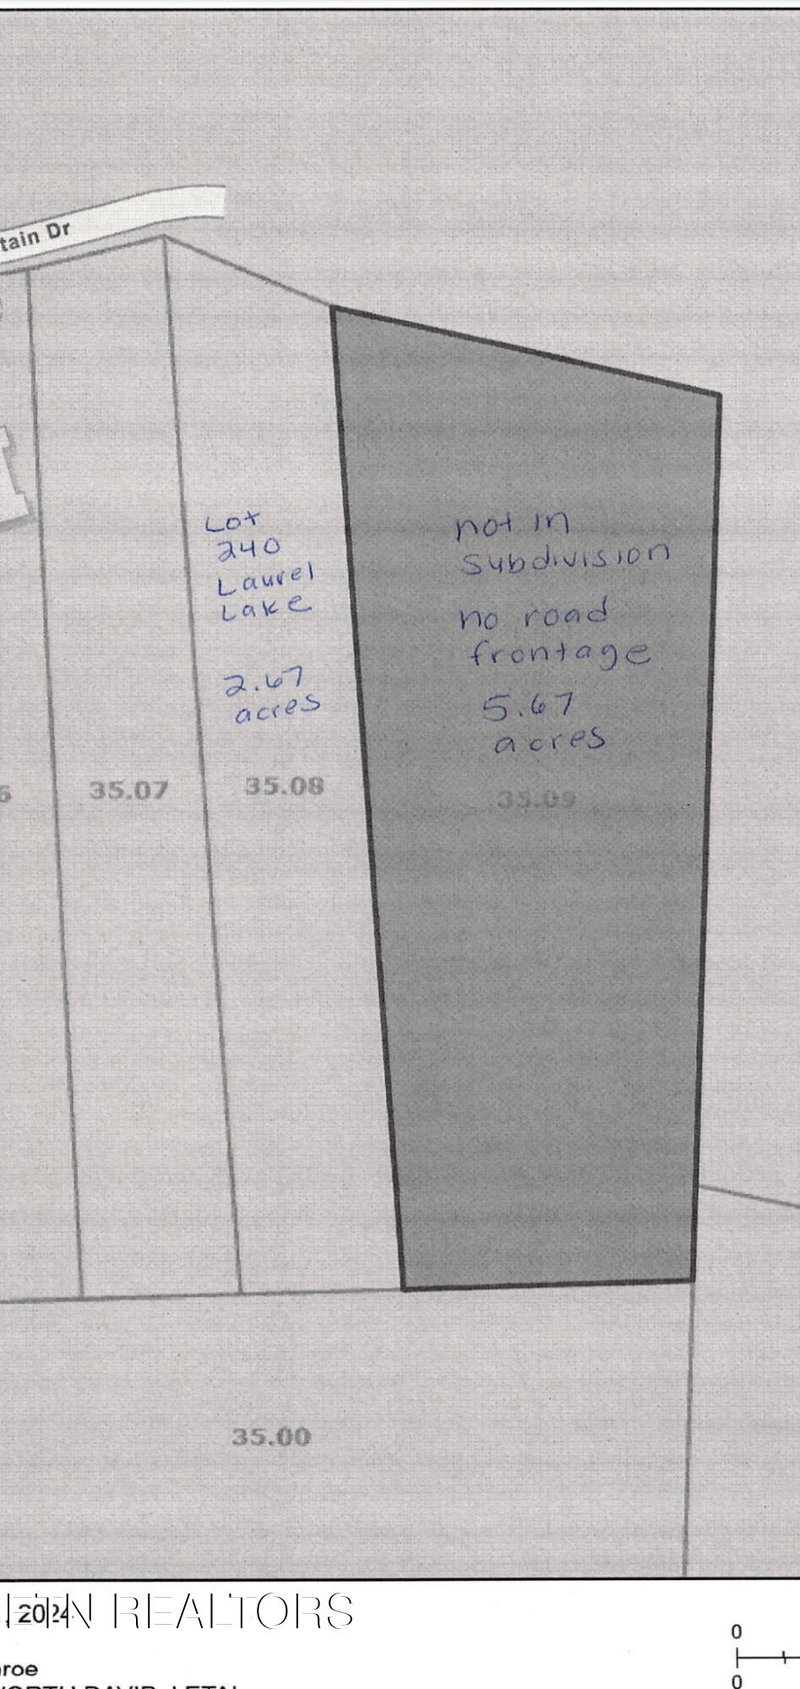 tain Dr
Lot
240
Laurel
Lake
2.67
acres
not in
subdivision
no road
frontage
5.67
acres
6
35.07
35.08
35.09
35.00
, 2024
ETN REALTORS
0
0
roe